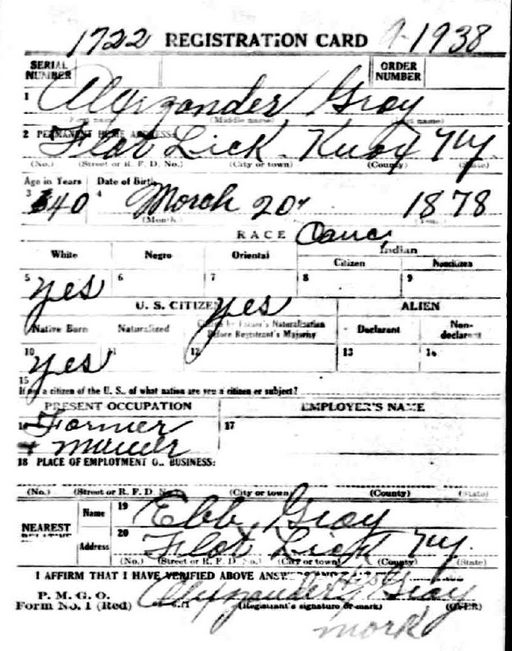 1722 REGISTRATION CARD 1938
SERIAL NUMBER ORDER NUMBER
1 Alexzander Gray
(First name) (Middle name) (Last name)
2 PERMANENT HOME ADDRESS:
Flat Lick Knox Ky
(No.) (Street or R. F. D. No.) (City or town) (County) (State)
Age in Years Date of Birth
3 40 4 March 20 1878
(Month.)
RACE
White Negro Oriental Indian
Citizen Noncitizen
5 yes 6 7 8 9
U. S. CITIZEN yes ALIEN
Native Born Naturalized Citizen by Father's Naturalization Before Registrant's Majority Declarant Non-declarant
10 yes 11 12 13 14
15
If not a citizen of the U. S., of what nation are you a citizen or subject?
PRESENT OCCUPATION EMPLOYER'S NAME
16 Farmer 17
+
18 PLACE OF EMPLOYMENT OR BUSINESS:
(No.) (Street or R. F. D. No.) (City or town) (County) (State)
NEAREST RELATIVE Name 19 Ebb Gray
Address 20 Flat Lick Ky.
(No.) (Street or R. F. D. No.) (City or town) (County) (State)
I AFFIRM THAT I HAVE VERIFIED ABOVE
P. M. G. O.
Form No. 1 (Red) Alexzander Gray
(Registrant's signature or mark) (OVER)
mark